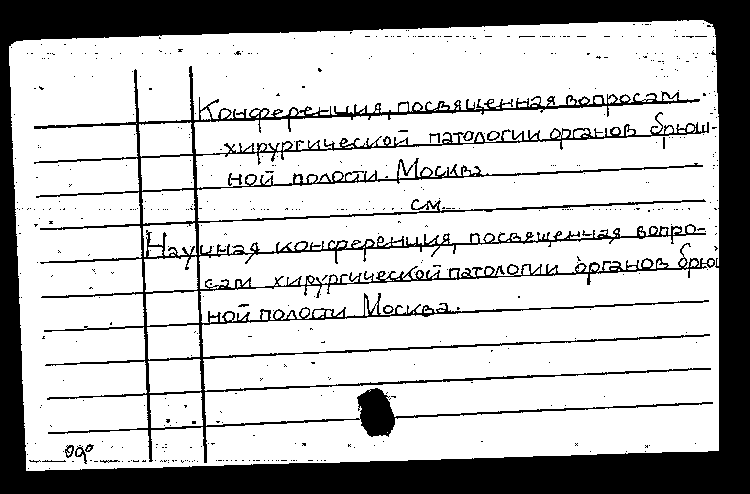 Конференция, посвященная вопросам
хирургической патологии органов брюш-
ной полости. Москва.
см.
Научная конференция, посвященная вопро-
сам хирургической патологии органов брюш
ной полости Москва.